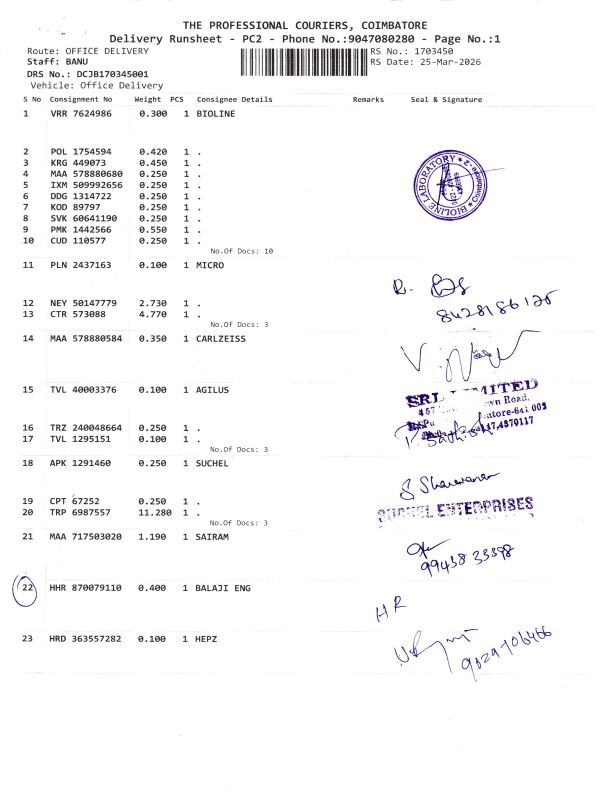 THE PROFESSIONAL COURIERS, COIMBATORE
Delivery Runsheet - PC2 - Phone No.:9047080280 - Page No.:1
Route: OFFICE DELIVERY RS No.: 1703450
Staff: BANU RS Date: 25-Mar-2026
DRS No.: DCJB170345001
Vehicle: Office Delivery
S No Consignment No Weight PCS Consignee Details Remarks Seal & Signature
1 VRR 7624986 0.300 1 BIOLINE
2 POL 1754594 0.420 1 .
3 KRG 449073 0.450 1 .
4 MAA 578880680 0.250 1 .
5 IXM 509992656 0.250 1 .
6 DDG 1314722 0.250 1 .
7 KOD 89797 0.250 1 .
8 SVK 60641190 0.250 1 .
9 PMK 1442566 0.550 1 .
10 CUD 110577 0.250 1 .
BIOLINE LABORATORY * Coimbatore-2 *
No.Of Docs: 10
11 PLN 2437163 0.100 1 MICRO
R.
8428186125
12 NEY 50147779 2.730 1 .
13 CTR 573088 4.770 1 .
No.Of Docs: 3
14 MAA 578880584 0.350 1 CARLZEISS
15 TVL 40003376 0.100 1 AGILUS
SRL LIMITED
Road,
16 TRZ 240048664 0.250 1 .
17 TVL 1295151 0.100 1 .
No.Of Docs: 3
18 APK 1291460 0.250 1 SUCHEL
S Sharavanan
19 CPT 67252 0.250 1 .
20 TRP 6987557 11.280 1 .
SUCHEL ENTERPRISES
No.Of Docs: 3
21 MAA 717503020 1.190 1 SAIRAM
99438 33398
22 HHR 870079110 0.400 1 BALAJI ENG
HR
23 HRD 363557282 0.100 1 HEPZ